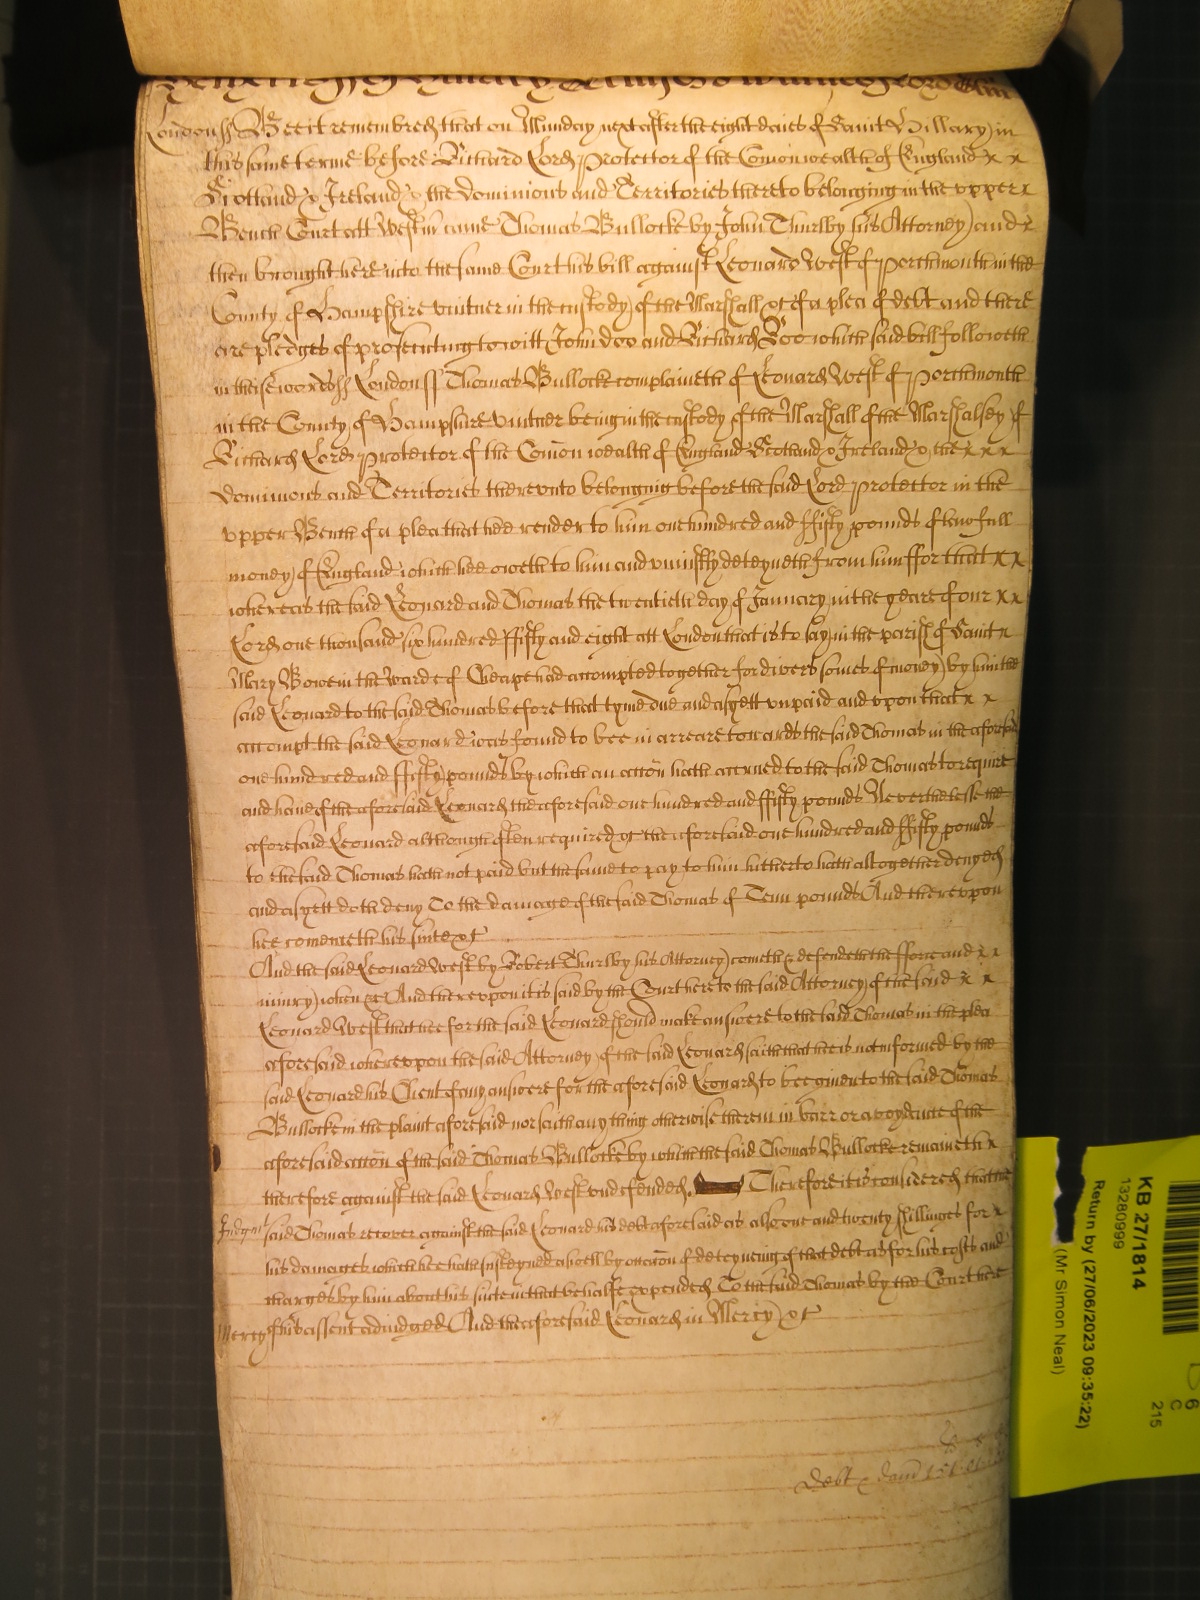 London ss Bee it remembred that on Munday next after the eight daies of Saint Hillary in
this same terme before Richard Lord Protector of the Comon wealth of England x x
Scotland & Ireland & the dominions and Territories thereto belonging in the upper x
Bench Court att Westm came Thomas Bullocke by John Thursby his Attorney and x
then brought here into the same Court his bill against Leonard West of Portchmouth in the
County of Hampshire vintner in the custody of the Marshall &c of a plea of debt and there
are pledges of prosecuting to witt John Doo and Richard Roo which said bill followeth
in theise words ss London ss Thomas Bullocke complaineth of Leonard West of Portchmouth
in the County of Hampshire vintner being in the custody of the Marshall of the Marshalsey of
Richard Lord Protector of the Comon wealth of England Scotland & Ireland & the x x x
dominions and Territories thereunto belonging before the said Lord Protector in the
upper Bench of a plea that hee render to him one hundred and ffifty pounds of lawfull
money of England which hee oweth to him and uniustly deteyneth from him ffor that x x
whereas the said Leonard and Thomas the twentieth day of January in the yeare of our x x
Lord one thousand six hundred ffifty and eight att London that is to say in the parish of Saint x
Mary Bowe in the warde of Cheape had accompted together for divers somes of money by him the
said Leonard to the said Thomas before that tyme due and as yett unpaid and upon that x x
accompt the said Leonard was found to bee in arreare towards the said Thomas in the aforesaid
one hundred and ffifty pounds by which an accōn hath accrued to the said Thomas to require
and have of the aforesaid Leonard the aforesaid one hundred and ffifty pounds Neverthelesse the
aforesaid Leonard although often required &c the aforesaid one hundred and ffifty pounds
to the said Thomas hath not paid but the same to pay to him hitherto hath altogether denyed
and as yett doth deny To the damage of the said Thomas of Tenn pounds And thereupon
hee cometh his suite &c
And the said Leonard West by Robert Thursby his Attorney cometh & defendeth the fforce and x x
iniury when &c And thereupon it is said by the Court here to the said Attorney of the said x x
Leonard West that hee for the said Leonard should make answere to the said Thomas in the plea
aforesaid whereupon the said Attorney of the said Leonard saith that he is not informed by the
said Leonard his Client of any answere for the aforesaid Leonard to bee given to the said Thomas
Bullocke in the plaint aforesaid nor saith any thing otherwise therein in barr or avoydance of the
aforesaid accōn of the said Thomas Bullocke by which the said Thomas Bullocke remaineth x
therefore against the said Leonard West undefended. Therefore it is considered that the
Judgmt said Thomas recover against the said Leonard his debt aforesaid as also one and twenty shillinges for x
his damages which hee hath susteyned aswell by occasion of deteyneing of that debt as for his costs and
charges by him about his suite in that behalfe expended To the said Thomas by the Court here
Mercy of his assent adiudged And the aforesaid Leonard in Mercy &c
debt & dam
KB 27/1814
13280999
Return by (27/06/2023 09:35:22)
(Mr Simon Neal)
6
C
215